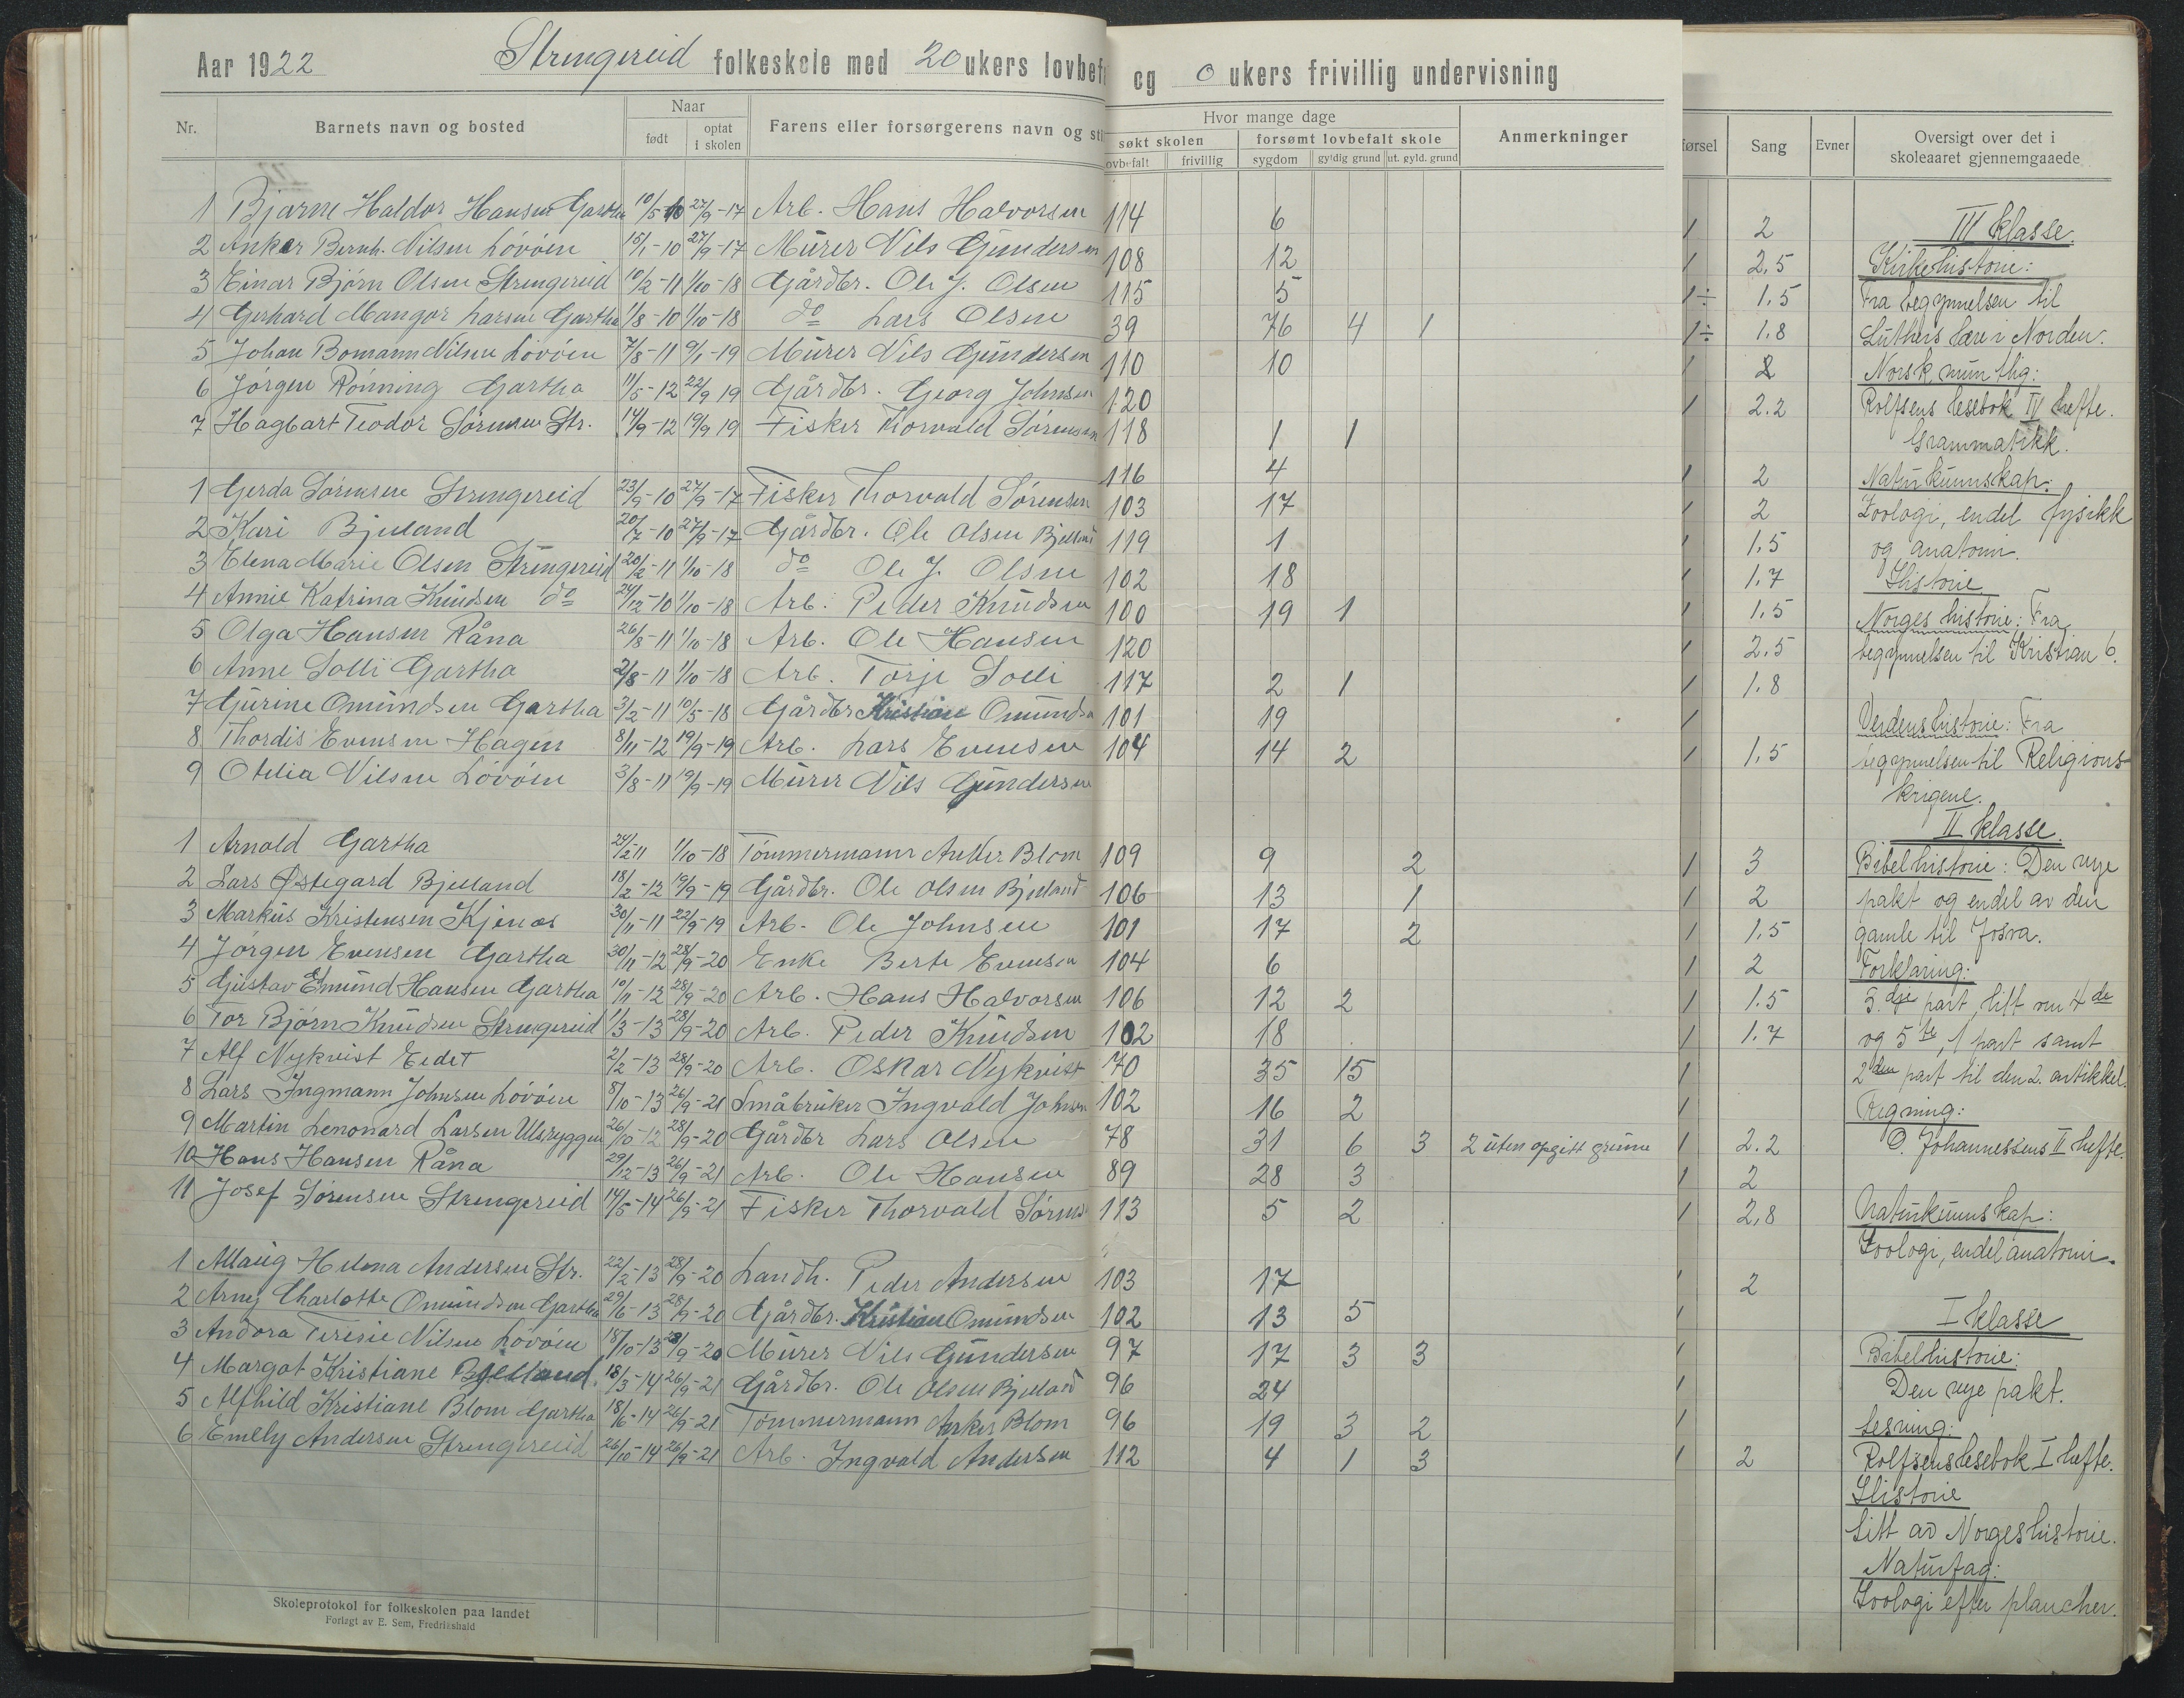 Aar 1922 Strengereid folkeskole med 20 ukers lovbef og 0 ukers frivillig undervisning
Nr. Barnets navn og bosted Naar født optat i skolen Farens eller forsørgerens navn og sti Hvor mange dage søkt skolen ovbefalt frivillig forsømt lovbefalt skole sygdom gyldig grund ut. gyld. grund Anmerkninger førsel Sang Evner Oversigt over det i skoleaaret gjennemgaaede
1 Bjarne Haldor Hansen Gartha 10/5-10 27/9-17 Arb. Hans Halvorsen 114 6 1 2
2 Anker Bernh. Nilsen Løvøen 15/1-10 27/9-17 Murer Nils Gundersen 108 12 1 2,5
3 Einar Bjørn Olsen Strengereid 10/2-11 1/10-18 Gårdbr. Ole J. Olsen 115 5 1÷ 1.5
4 Gerhard Mangor Larsen Gartha 1/8-10 1/10-18 do Lars Olsen 39 76 4 1 1÷ 1.8
5 Johan Bomann Nilsen Løvøen 7/8-11 9/1-19 Murer Nils Gundersen 110 10 1 2
6 Jørgen Rønning Gartha 11/5-12 22/9 19 Gårdbr. Georg Johnsen 120 1 2.2
7 Hagbart Teodor Sørensen Str. 14/9-12 19/9 19 Fisker Thorvald Sørensen 118 1 1
1 Gerda Sørensen Strengereid 23/9-10 27/9-17 Fisker Thorvald Sørensen 116 4 1 2
2 Kari Bjelland 20/7-10 27/9-17 Gårdbr. Ole Olsen Bjelland 103 17 1 2
3 Elena Marie Olsen Strengereid 20/2-11 1/10-18 do Ole J. Olsen 119 1 1 1.5
4 Annie Katrina Knudsen do 24/12-10 1/10-18 Arb. Peder Knudsen 102 18 1 1.7
5 Olga Hansen Råna 26/8-11 1/10-18 Arb. Ole Hansen 100 19 1 1 1.5
6 Anne Solli Gartha 2/8-11 1/10-18 Arb. Torje Solli 120 1 2.5
7 Gurine Omundsen Gartha 3/2-11 10/5-18 Gårdbr Kristian Omundsen 117 2 1 1 1.8
8 Thordis Evensen Hagen 8/11-12 19/9-19 Arb. Lars Evensen 101 19 1
9 Otelia Nilsen Løvøen 3/8-11 19/9-19 Murer Nils Gundersen 104 14 2 1 1,5
1 Arnold Gartha 24/2 11 1/10-18 Tømmermann Anker Blom 109 9 2 1 3
2 Lars Østegard Bjelland 18/2-12 19/9-19 Gårdbr. Ole Olsen Bjelland 106 13 1 1 2
3 Markus Kristensen Kjenos 30/11-11 22/9-19 Arb. Ole Johnsen 101 17 2 1 1,5
4 Jørgen Evensen Gartha 30/11-12 28/9-20 Enke Berte Evensen 104 6 1 2
5 Gustav Emund Hansen Gartha 10/11-12 28/9-20 Arb. Hans Halvorsen 106 12 2 1 1.5
6 Tor Bjørn Knudsen Strengereid 1/3-13 28/9-20 Arb. Peder Knudsen 102 18 1 1.7
7 Alf Nykvist Eidet 2/2-13 28/9-20 Arb. Oskar Nykvist 70 35 15 1
8 Lars Ingmann Johnsen Løvøen 8/10-13 26/9-21 Småbruker Ingvald Johnsen 102 16 2 1
9 Martin Lenonard Larsen Ulsryggen 26/10-12 28/9-20 Gårdbr Lars Olsen 78 31 6 3 2 uten opgitt grunn 1 2.2
10 Hans Hansen Råna 29/12-13 26/9-21 Arb. Ole Hansen 89 28 3 1 2
11 Josef Sørensen Strengereid 14/5-14 26/9-21 Fisker Thorvald Sørens 113 5 2 1 2,8
1 Allaug Helena Andersen Str. 22/2-13 28/9-20 Landh. Peder Andersen 103 17 1 2
2 Arny Charlotte Omundsen Gartha 29/6-13 28/9-20 Gårdbr. Kristian Omundsen 102 13 5 1
3 Andora Teresie Nilsen Løvøen 18/10-13 28/9-20 Murer Nils Gundersen 97 17 3 3 1
4 Margot Kristiane Bjelland. 18/3-14 26/9-21 Gårdbr. Ole Olsen Bjelland 96 24 1
5 Alfhild Kristiane Blom Gartha 18/6-14 26/9-21 Tømmermann Anker Blom 96 19 3 2 1
6 Emely Andersen Strengereid 26/10-14 26/9-21 Arb. Ingvald Andersen 112 4 1 3 1 2
III klasse.
Kirkehistorie:
Fra begynnelsen til
Luthers lære i Norden.
Norsk munthg:
Rolfsens lesebok IV hefte.
Grammatikk.
Naturkunnskap:
Zoologi, endel fysikk
og anatomi.
Historie
Norges historie: Fra
begynnelsen til Kristian 6.
Verdenshistorie: Fra
begynnelsen til Religions-
krigene.
II klasse.
Bibelhistorie: Den nye
pakt og endel av den
gamle til Josva.
Forklaring:
3.dje part, litt om 4de
og 5te, 1 part samt
2den part til den 2. artikkel.
Regning:
O. Johannessens II hefte.
Naturkunnskap:
Zoologi, endel anatomi.
I klasse
Bibelhistorie:
Den nye pakt.
Lesning:
Rolfsens lesebok I hefte.
Historie
Litt av Norgeshistorie.
Naturfag:
Zoologi efter plancher.
Skoleprotokol for folkeskolen paa landet
Forlagt av E. Sem, Fredrikshald